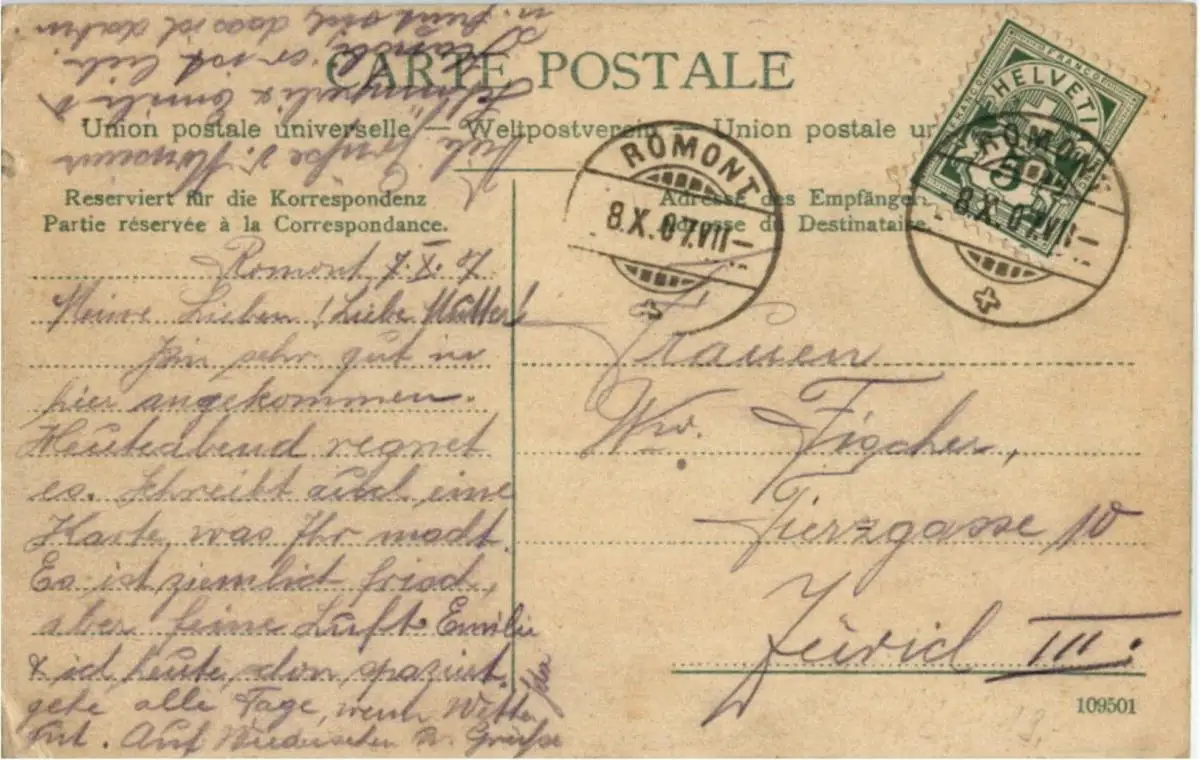 CARTE POSTALE
Union postale universelle — Weltpostverein — Union postale un
Reserviert für die Korrespondenz
Partie réservée à la Correspondance.
Adresse des Empfängers
Adresse du Destinataire
HELVETIA
FRANCO
5
ROMONT
8.X.07.VII–
ROMONT
8.X.07.VII–
Romont 7.X.07
Meine Lieben! Liebe Mutter!
Bin sehr gut
hier angekommen.
Heuteabend regnet
es. Schreibt auch eine
Karte, was Ihr macht.
Es ist ziemlich frisch,
aber feine Luft. Emilie
& ich heute, schon spaziert.
gehe alle Tage, wenn
gut. Auf Wiedersehen & Grüsse
Viele Grüsse v.
& Emili
er ist lieb
u. das ist
Frauen
Ww. Fischer,
Zierzgasse 10
Zürich III.
109501